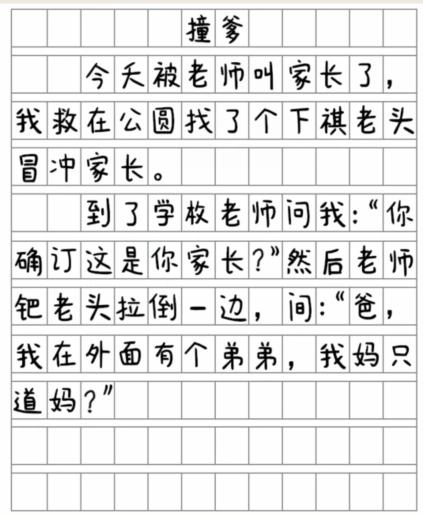 撞爹
今天被老师叫家长了，
我救在公圆找了个下祺老头
冒冲家长。
到了学校老师问我：“你
确订这是你家长？”然后老师
钯老头拉倒一边，间：“爸，
我在外面有个弟弟，我妈只
道妈？”